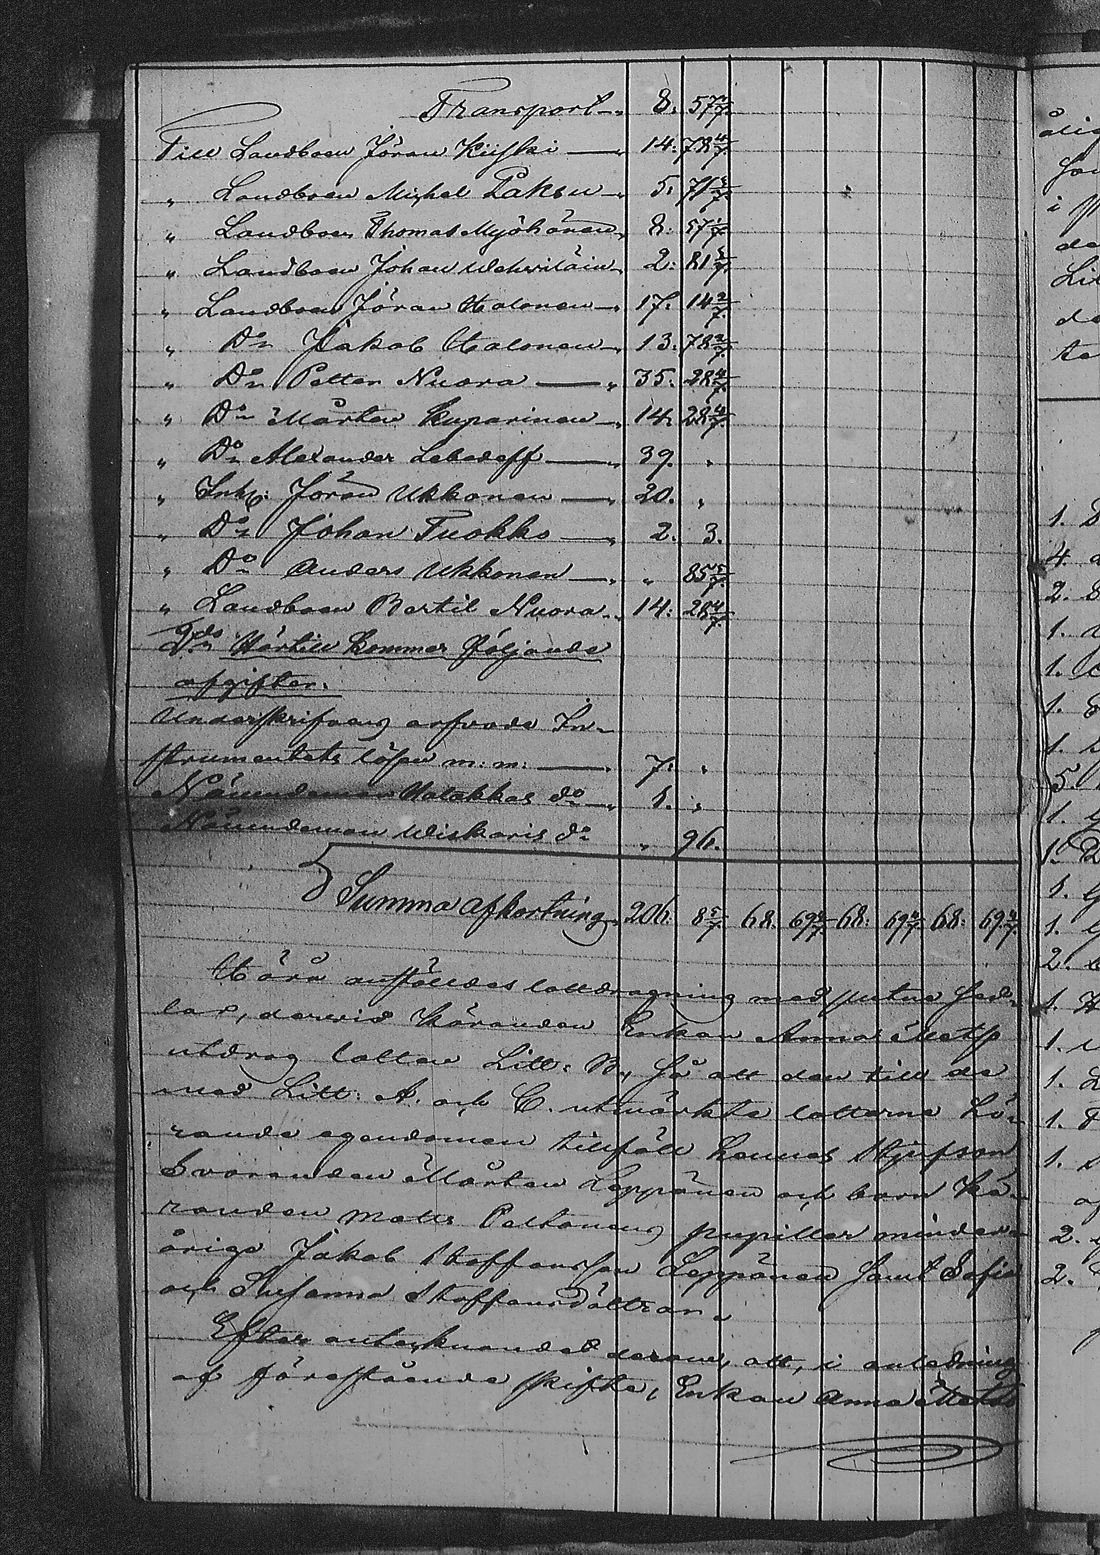 Transport 8: 57 1/7
Till Landboen Jöran Kiiski 14: 78 4/7
„ Landboen Michel Paksu 5: 71 3/7
„ Landboen Thomas Myöhänen 8: 57 1/7
„ Landboen Johan Wehviläin 2: 81 5/7
„ Landboen Jöran Halonen 17: 14 2/7
„ Do Jakob Halonen 13: 78 2/7
„ Do Petter Nuora 35: 28 4/7
„ Do Mårten Kuparinen 14: 28 4/7
„ Do Alexander Lebedeff 39. „
„ Inh: Jöran Ukkonen 20. „
„ Do Johan Tuokko 2. 3.
„ Do Anders Ukkonen „ 85 5/7
„ Landboen Bertil Nuora 14: 28 4/7
Härtill kommer följande
afgifter.
Underskrifvens arfvode In-
strumentets lösen m: m: 7: „
Nämndeman Hatakkas do 1. „
Nämndeman Wiskaris do „ 96.
Summa afkortning 206. 8 5/7 68. 69 4/7 68: 69 4/7 68: 69 4/7
Härå anställdes lottdragning med slutna sed-
lar, dervid Käranden Enkan Anna Matsd
utdrog lotten Litt: B, så att den till de
med Litt: A. och C. utmärkta lotterna hö-
rande egendomen tillföll hennes Styfson
Svaranden Mårten Leppänen och barn Kä-
randen Matts Peltonens pupiller minder-
åriga Jakob Staffansson Leppänen samt Sofia
och Susanna Staffansdöttrar.
Efter antecknandet deraf, att, i anledning
af förestående skifte, Enkan Anna Matsd